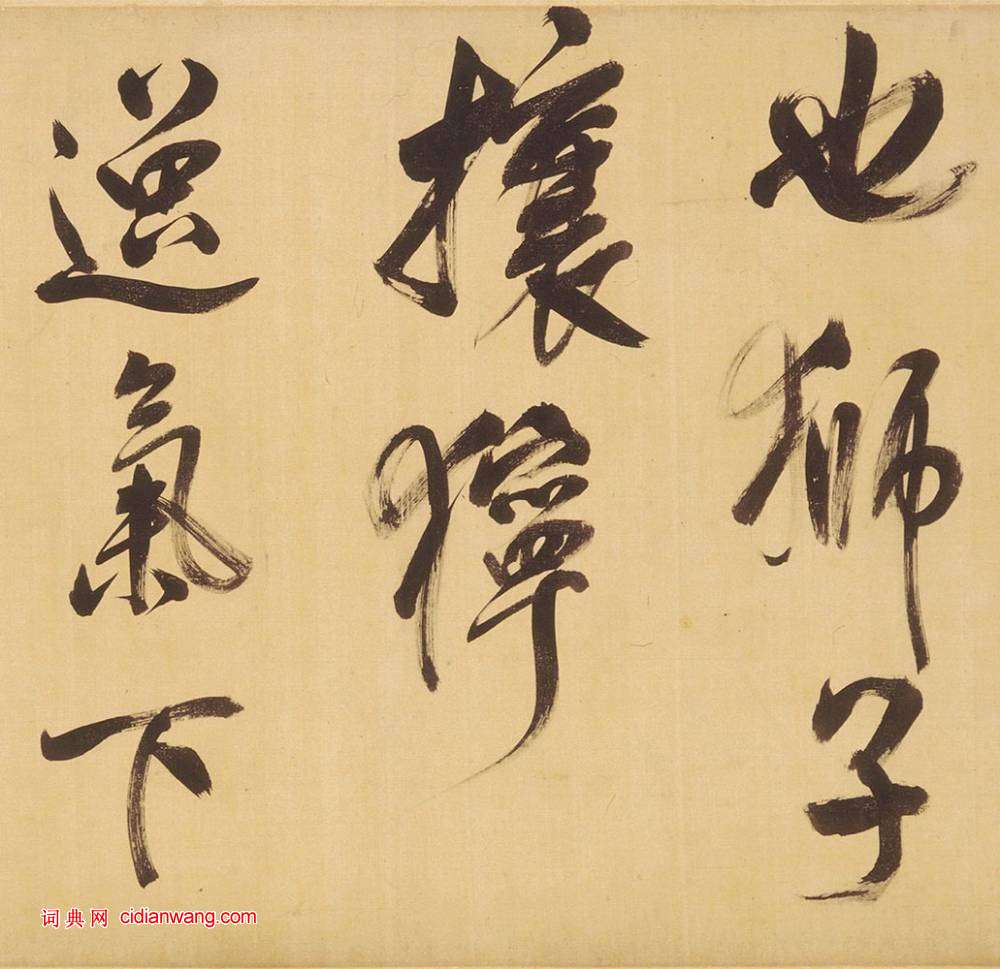 也狮子
攘獰
氣下
词典网 cidianwang.com